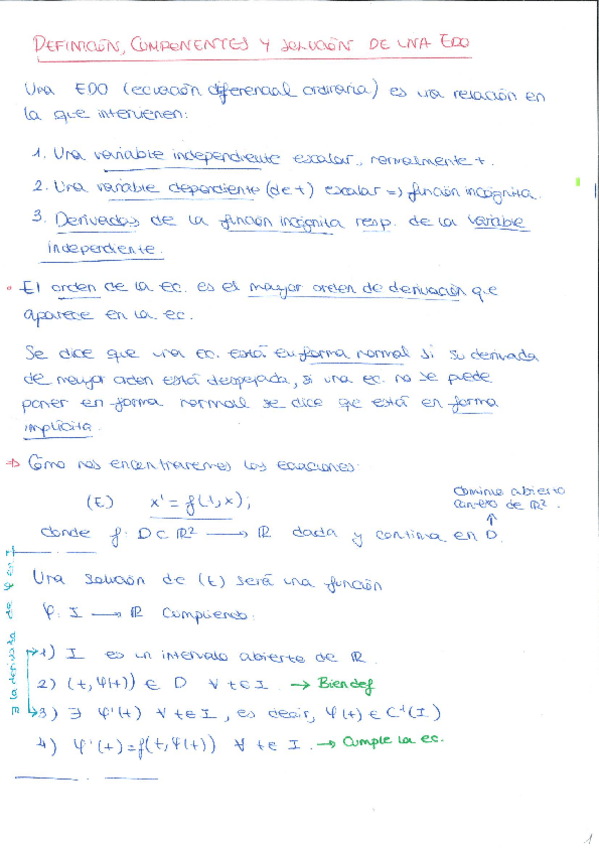 DEFINICIÓN, COMPONENTES Y SOLUCIÓN DE UNA EDO
Una EDO (ecuación diferencial ordinaria) es una relación en
la que intervienen:
1. Una variable independiente escalar, normalmente t.
2. Una variable dependiente (de t) escalar => función incógnita.
3. Derivadas de la función incógnita resp. de la variable
independiente.
• El orden de la ec. es el mayor orden de derivación que
aparece en la ec.
Se dice que una ec. está en forma normal si su derivada
de mayor orden está despejada, si una ec. no se puede
poner en forma normal se dice que está en forma
implícita.
⇒ Cómo nos encontraremos las ecuaciones:
(E) x' = f(t,x);
dominio abierto
conexo de ℝ².
↑
donde f: D ⊂ ℝ² → ℝ dada y continua en D.
Una solución de (E) será una función
φ: I → ℝ cumpliendo:
1) I es un intervalo abierto de ℝ.
2) (t, φ(t)) ∈ D ∀ t ∈ I. → Bien def
3) ∃ φ'(t) ∀ t ∈ I, es decir, φ(t) ∈ C¹(I)
4) φ'(t) = f(t, φ(t)) ∀ t ∈ I. → Cumple la ec.
∃ la derivada de φ en I
1